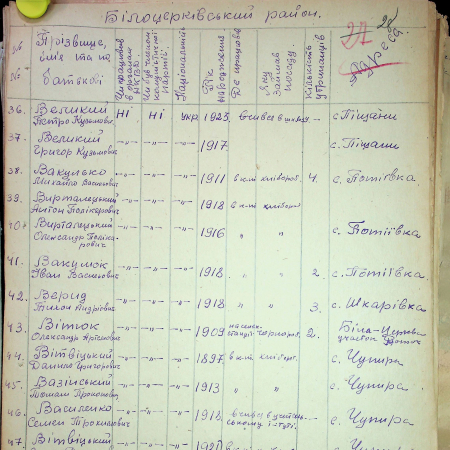 Білоцерківський район.
27 28
№№
Прізвище, імя та по батькові
Чи працював в органах НКВС
Чи був членом комуністичної партії
Національність
Рік народження
Де працював
Яку займав посаду
Кількість утриманців
Адреса
36. Великий Петро Кузьмович Ні Ні укр 1925 с. Піщани
37. Великий Григор Кузьмович -"- -"- -"- 1917 с. Піщани
38. Вакулько Михайло Васильович -"- -"- -"- 1911 в к-пі хлібороб. 4. с. Потіївка
39. Вирталецький Антон Полікарович -"- -"- -"- 1918 в к-пі хлібороб
40. Вирталецький Олександр Полікарович -"- -"- -"- 1916 " " с. Потіївка
41. Вакулюк Іван Васильович -"- -"- -"- 1918 " " 2. с. Потіївка
42. Верид Тихон Андрієвич -"- -"- -"- 1918 " " 3. с. Шкарівка
43. Віток Олександр -"- -"- -"- 1909 чорнороб. 2. Біла-Церква
44. Вітвіцький Данило Григорович -"- -"- -"- 1897 в к-пі хлібороб. с. Чупира
45. Вазінський -"- -"- -"- 1913 " " с. Чупира.
46. Василенко Семен Трохимович -"- -"- -"- 1918 с. Чупира
47. Вітвіцький -"- -"- -"-